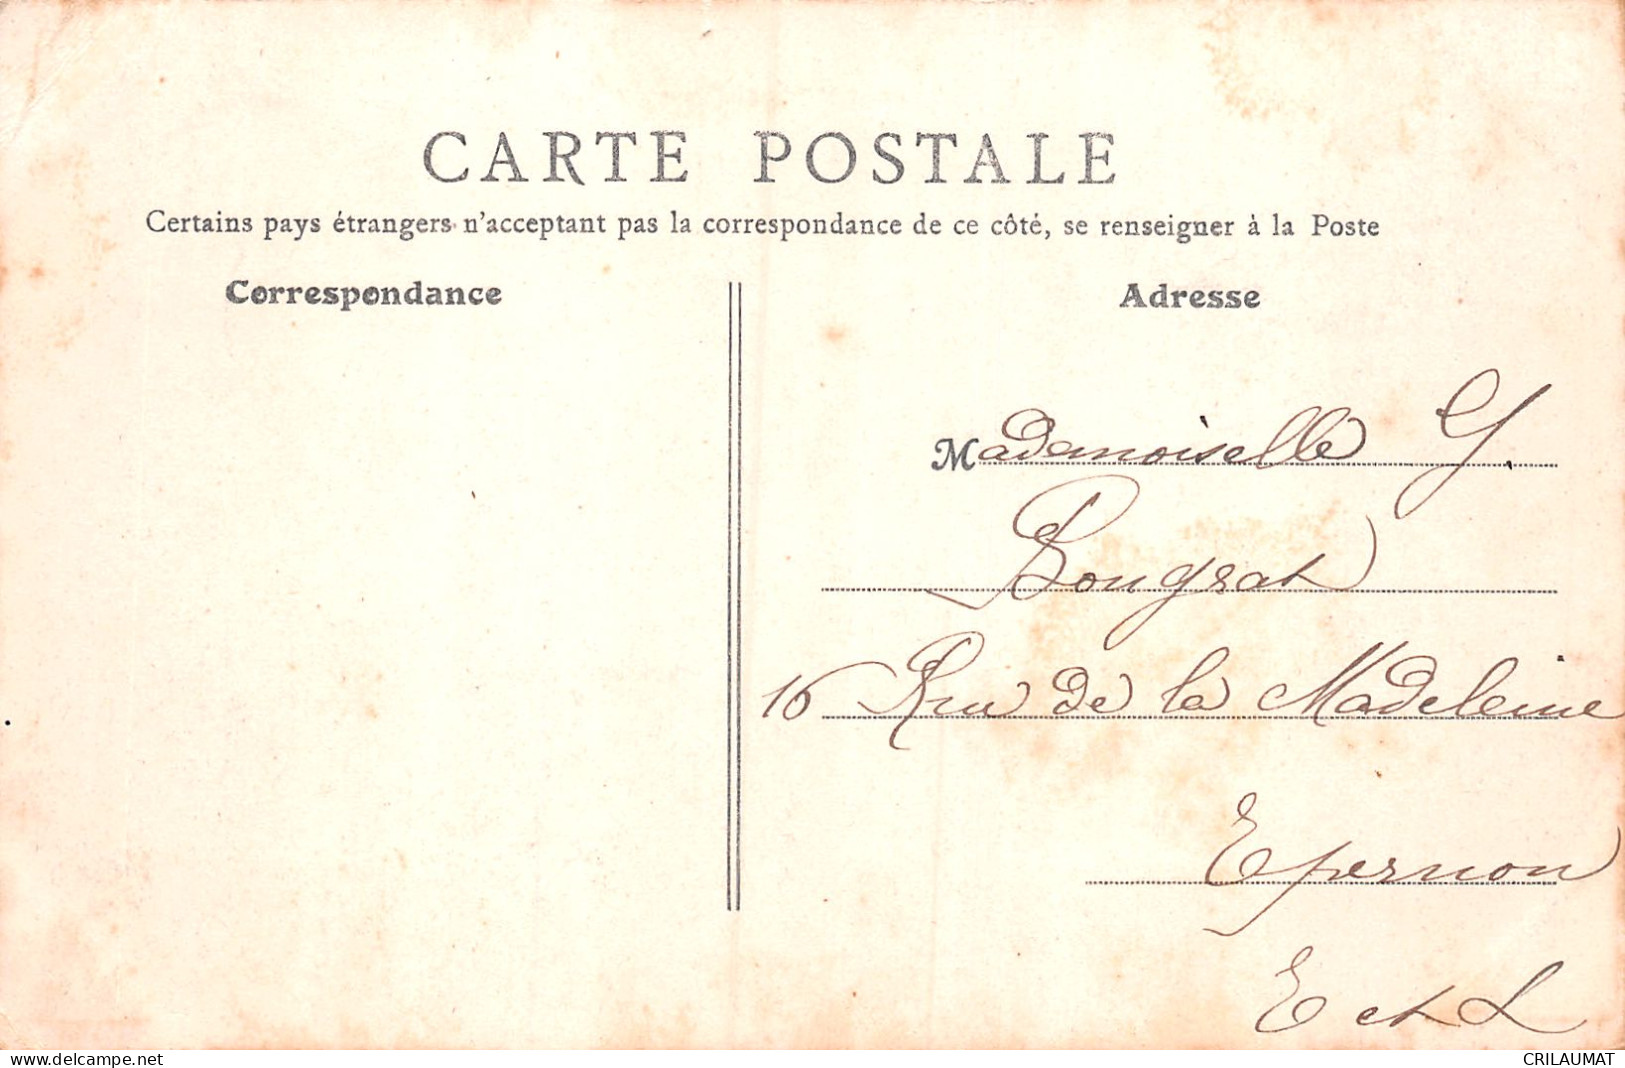 CARTE POSTALE
Certains pays étrangers n'acceptant pas la correspondance de ce côté, se renseigner à la Poste
Correspondance
Adresse
Mademoiselle G.
Bougrat
16 Rue de la Madeleine
Epernon
E et L
delcampe.net
CRILAUMAT